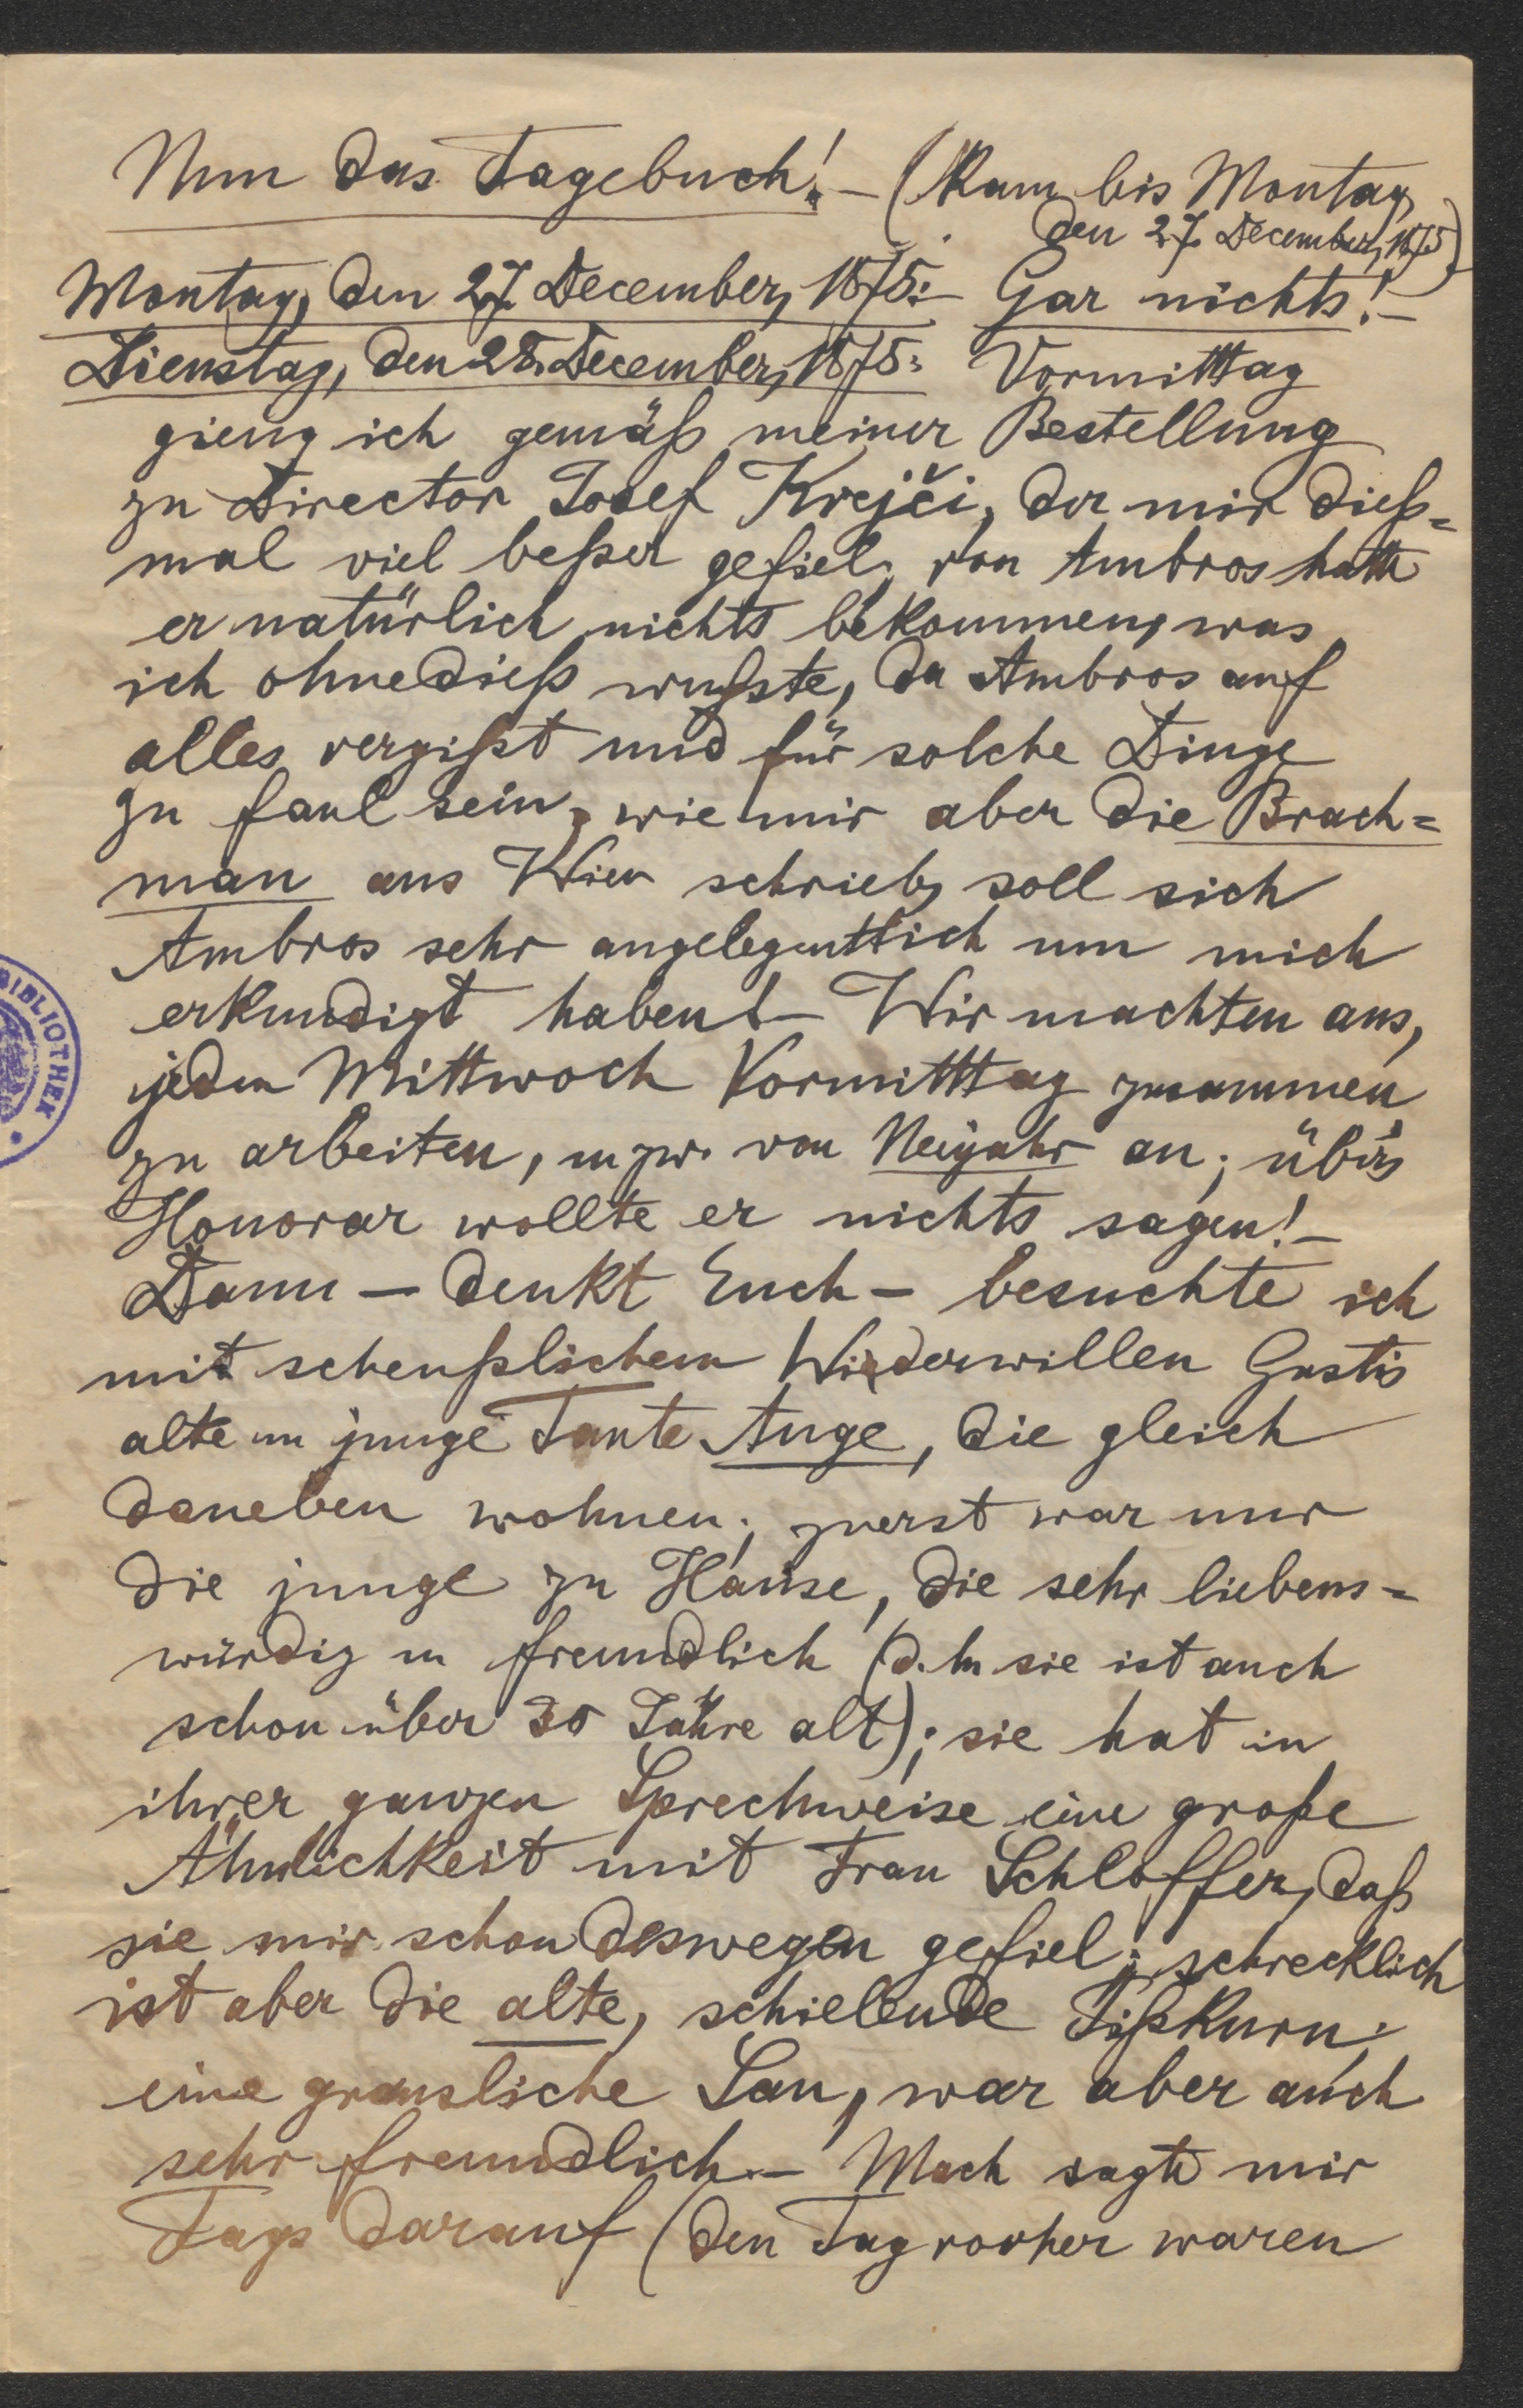 Nun das Tagebuch! – (Kam bis Montag,
den 27. December, 1875)
Montag, den 27. December, 1875:– Gar nichts! –
Dienstag, den 28. December, 1875: Vormitttag
gieng ich gemäß meiner Bestellung
zu Director Josef Krejči, der mir dieß=
mal viel beßer gefiel; von Ambros hatte
er natürlich nichts bekommen, was
ich ohnedieß wußste, da Ambros auf
alles vergißt und für solche Dinge
zu faul sein; wie mir aber die Brach=
man aus Wien schrieb, soll sich
Ambros sehr angelegentlich um mich
erkundigt haben! – Wir machten aus,
jeden Mittwoch Vormitttag zusammen
zu arbeiten, u zw. von Neujahr an; über's
Honorar wollte er nichts sagen! –
Dann – denkt Euch – besuchte ich
mit scheußslichem Wiederwillen Gustis
alte u junge Tante Auge, die gleich
daneben wohnen; zuerst war nur
die junge zu Hause, die sehr liebens=
würdig u freundlich (d. h. sie ist auch
schon über 30 Jahre alt); sie hat in
ihrer ganzen Sprechweise eine große
Ähnlichkeit mit Frau Schloffer, daß
sie mir schon deswegen gefiel; schrecklich
ist aber die alte, schielende
eine grausliche Sau, war aber auch
sehr freundlich. – Mach sagte mir
Tags darauf (den Tag vorher waren
BIBLIOTHEK